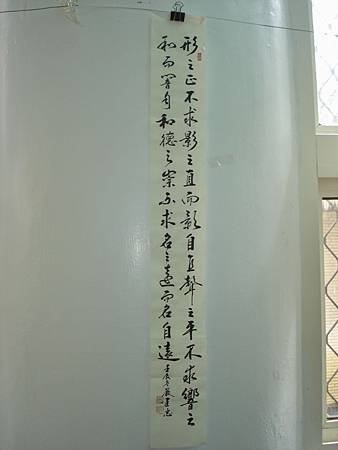 形之正不求影之直而影自直聲之平不求響之
和而響自和德之崇不求名之遠而名自遠
壬辰年